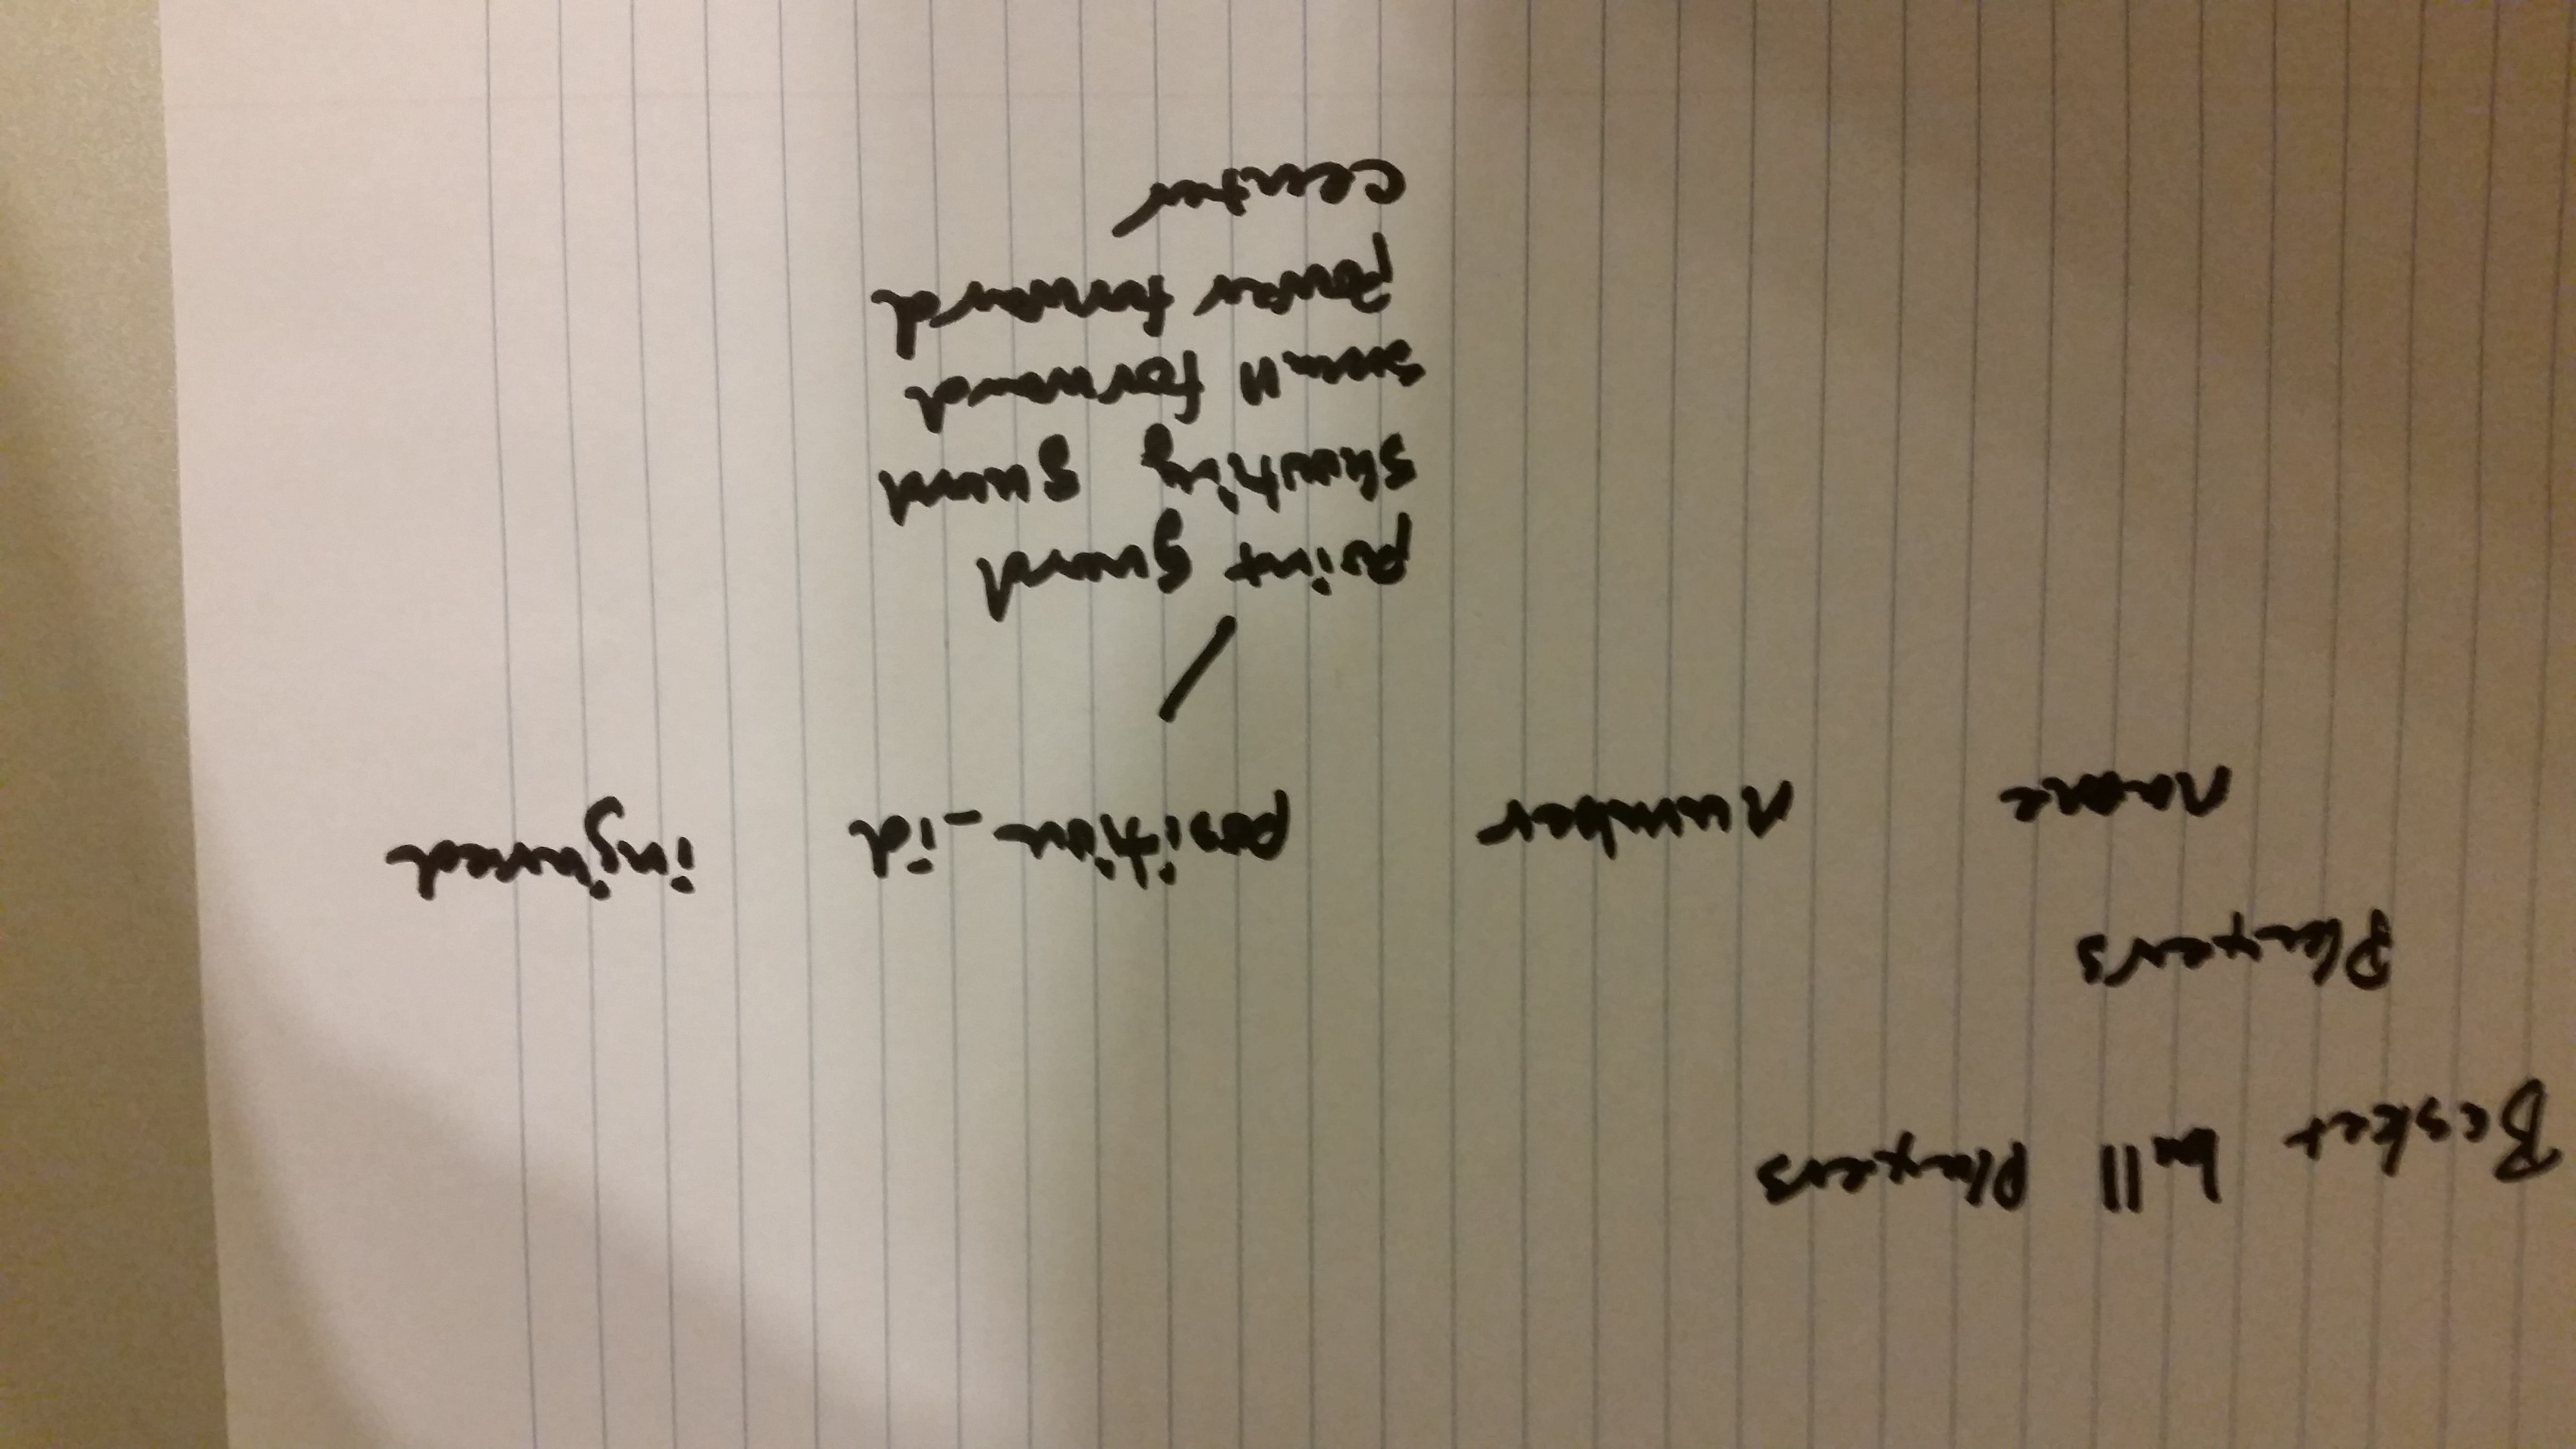 Basket ball Players
Players
name number position_id injured
point guard
shooting guard
small forward
Power forward
center